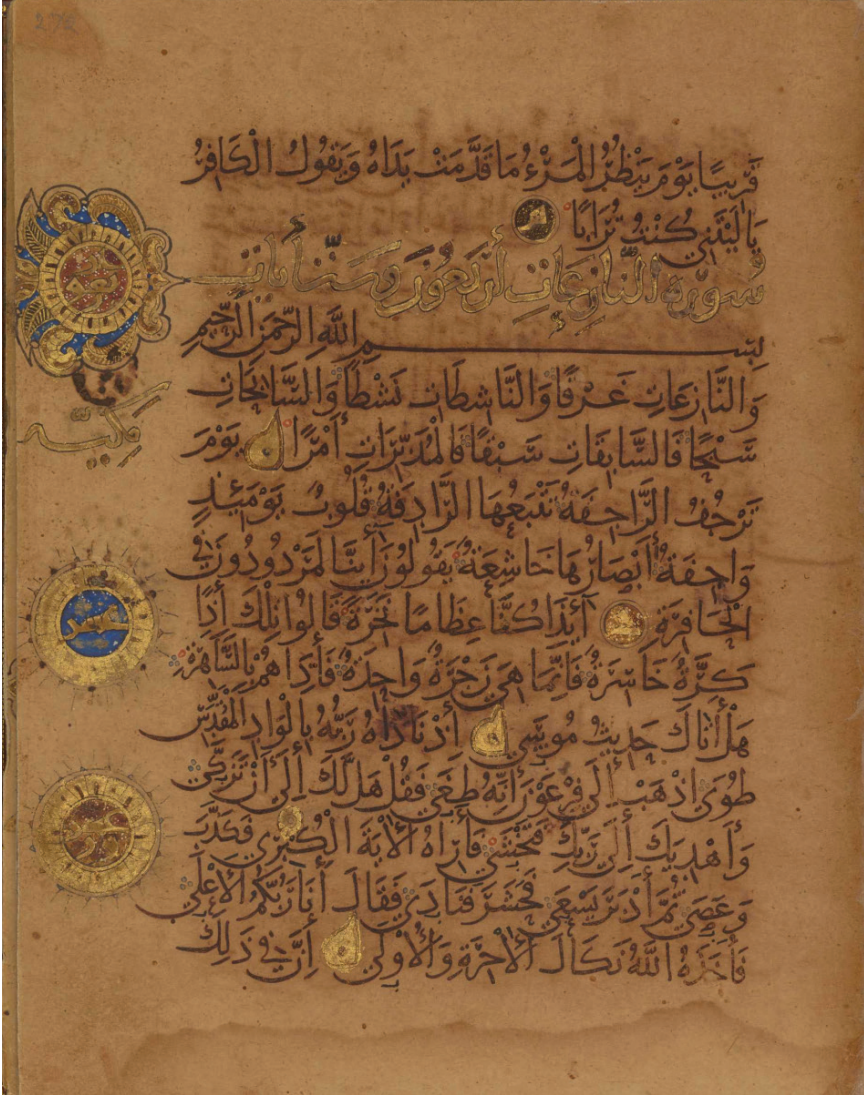 قَرِيبًا يَوْمَ يَنْظُرُ الْمَرْءُ مَا قَدَّمَتْ يَدَاهُ وَيَقُولُ الْكَافِرُ
يَا لَيْتَنِي كُنْتُ تُرَابًا
سُورَةُ النَّازِعَاتِ أَرْبَعُونَ وَسِتُّ آيَاتٍ
بِسْمِ اللَّهِ الرَّحْمَنِ الرَّحِيمِ
وَالنَّازِعَاتِ غَرْقًا وَالنَّاشِطَاتِ نَشْطًا وَالسَّابِحَاتِ
مَكِّيَّة
سَبْحًا فَالسَّابِقَاتِ سَبْقًا فَالْمُدَبِّرَاتِ أَمْرًا يَوْمَ
تَرْجُفُ الرَّاجِفَةُ تَتْبَعُهَا الرَّادِفَةُ قُلُوبٌ يَوْمَئِذٍ
وَاجِفَةٌ أَبْصَارُهَا خَاشِعَةٌ يَقُولُونَ أَئِنَّا لَمَرْدُودُونَ فِي
الْحَافِرَةِ أَئِذَا كُنَّا عِظَامًا نَخِرَةً قَالُوا تِلْكَ إِذًا
عشر
كَرَّةٌ خَاسِرَةٌ فَإِنَّمَا هِيَ زَجْرَةٌ وَاحِدَةٌ فَإِذَا هُمْ بِالسَّاهِرَةِ
هَلْ أَتَاكَ حَدِيثُ مُوسَى إِذْ نَادَاهُ رَبُّهُ بِالْوَادِ الْمُقَدَّسِ
طُوًى اذْهَبْ إِلَى فِرْعَوْنَ إِنَّهُ طَغَى فَقُلْ هَلْ لَكَ إِلَى أَنْ تَزَكَّى
وَأَهْدِيَكَ إِلَى رَبِّكَ فَتَخْشَى فَأَرَاهُ الْآيَةَ الْكُبْرَى فَكَذَّبَ
وَعَصَى ثُمَّ أَدْبَرَ يَسْعَى فَحَشَرَ فَنَادَى فَقَالَ أَنَا رَبُّكُمُ الْأَعْلَى
فَأَخَذَهُ اللَّهُ نَكَالَ الْآخِرَةِ وَالْأُولَى إِنَّ فِي ذَلِكَ